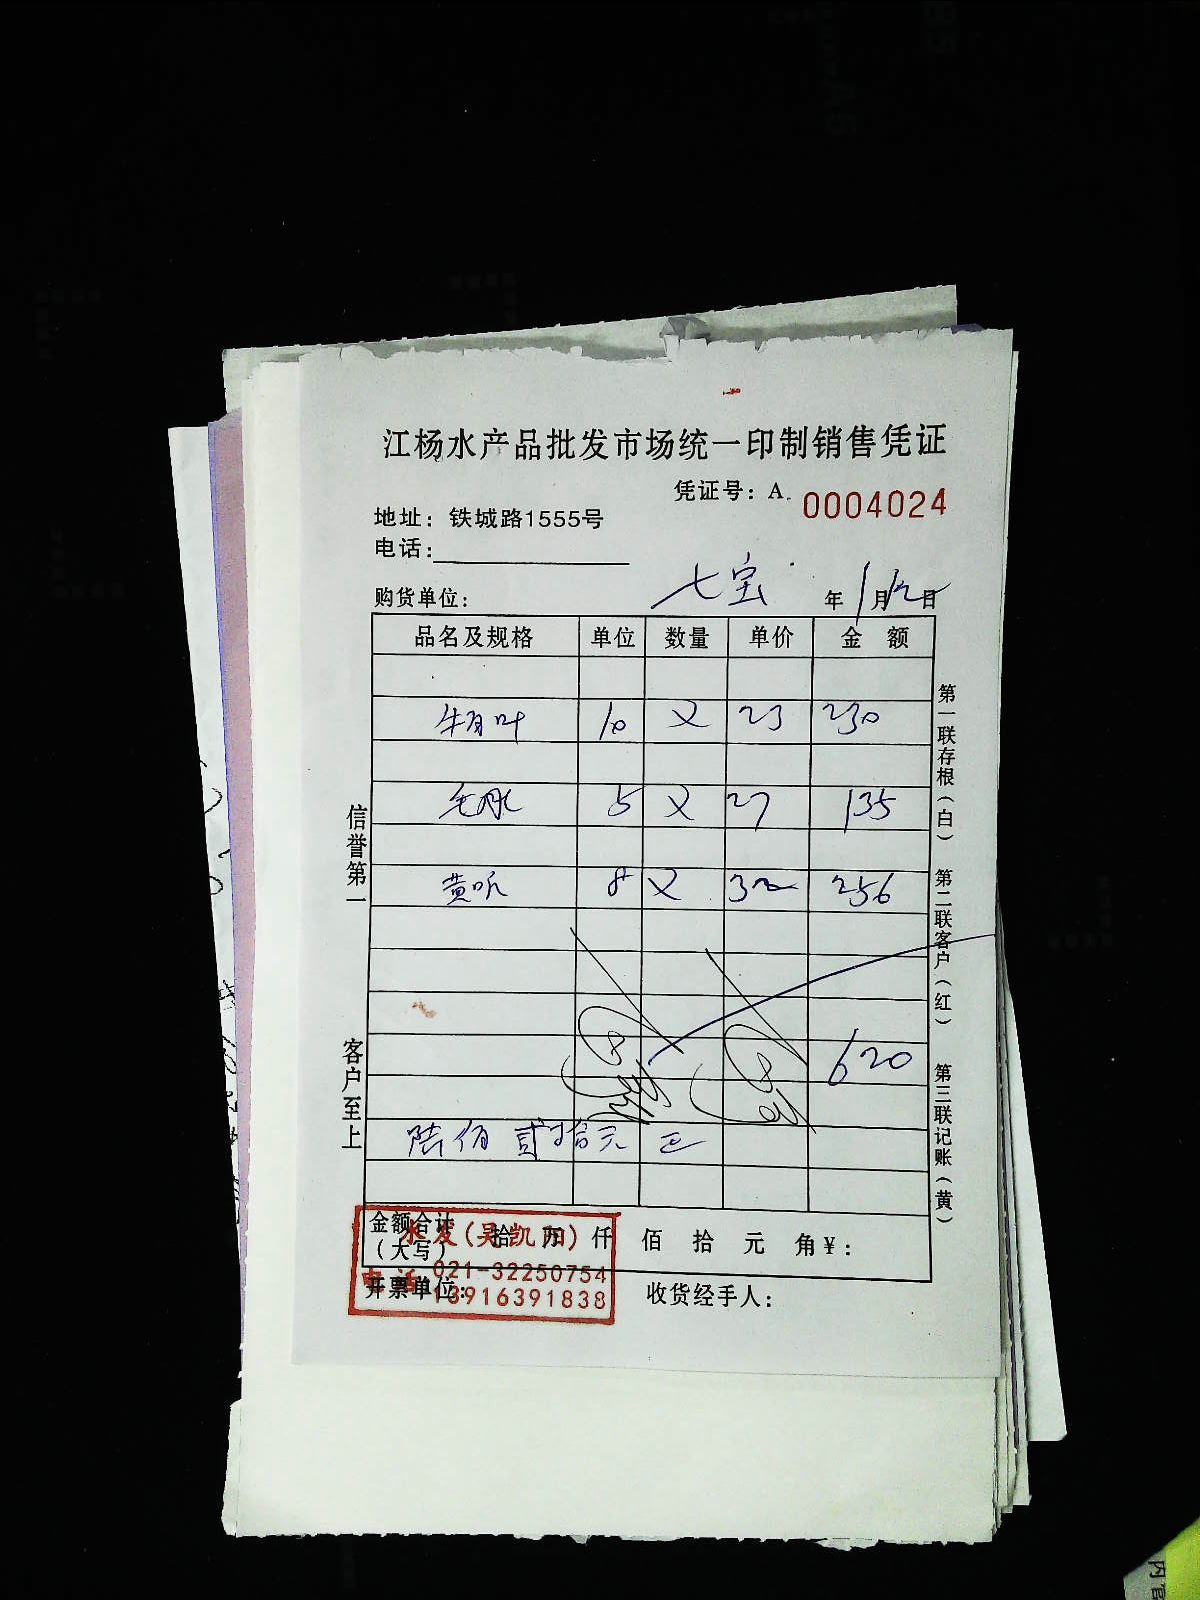 江杨水产品批发市场统一印制销售凭证
凭证号：A. 0004024
地址：铁城路1555号
电话：
购货单位： 七宝 年1月12日
品名及规格 单位 数量 单价 金额
牛百叶 10 × 23 230
毛肚 5 × 27 135
黄喉 8 × 32 256
620
陆佰贰拾元正
金额合计
（大写） 拾 万 仟 佰 拾 元 角¥：
水发（吴凯阳）
电话 021-32250754
13916391838
开票单位： 收货经手人：
信誉第一
客户至上
第一联存根（白）
第二联客户（红）
第三联记账（黄）